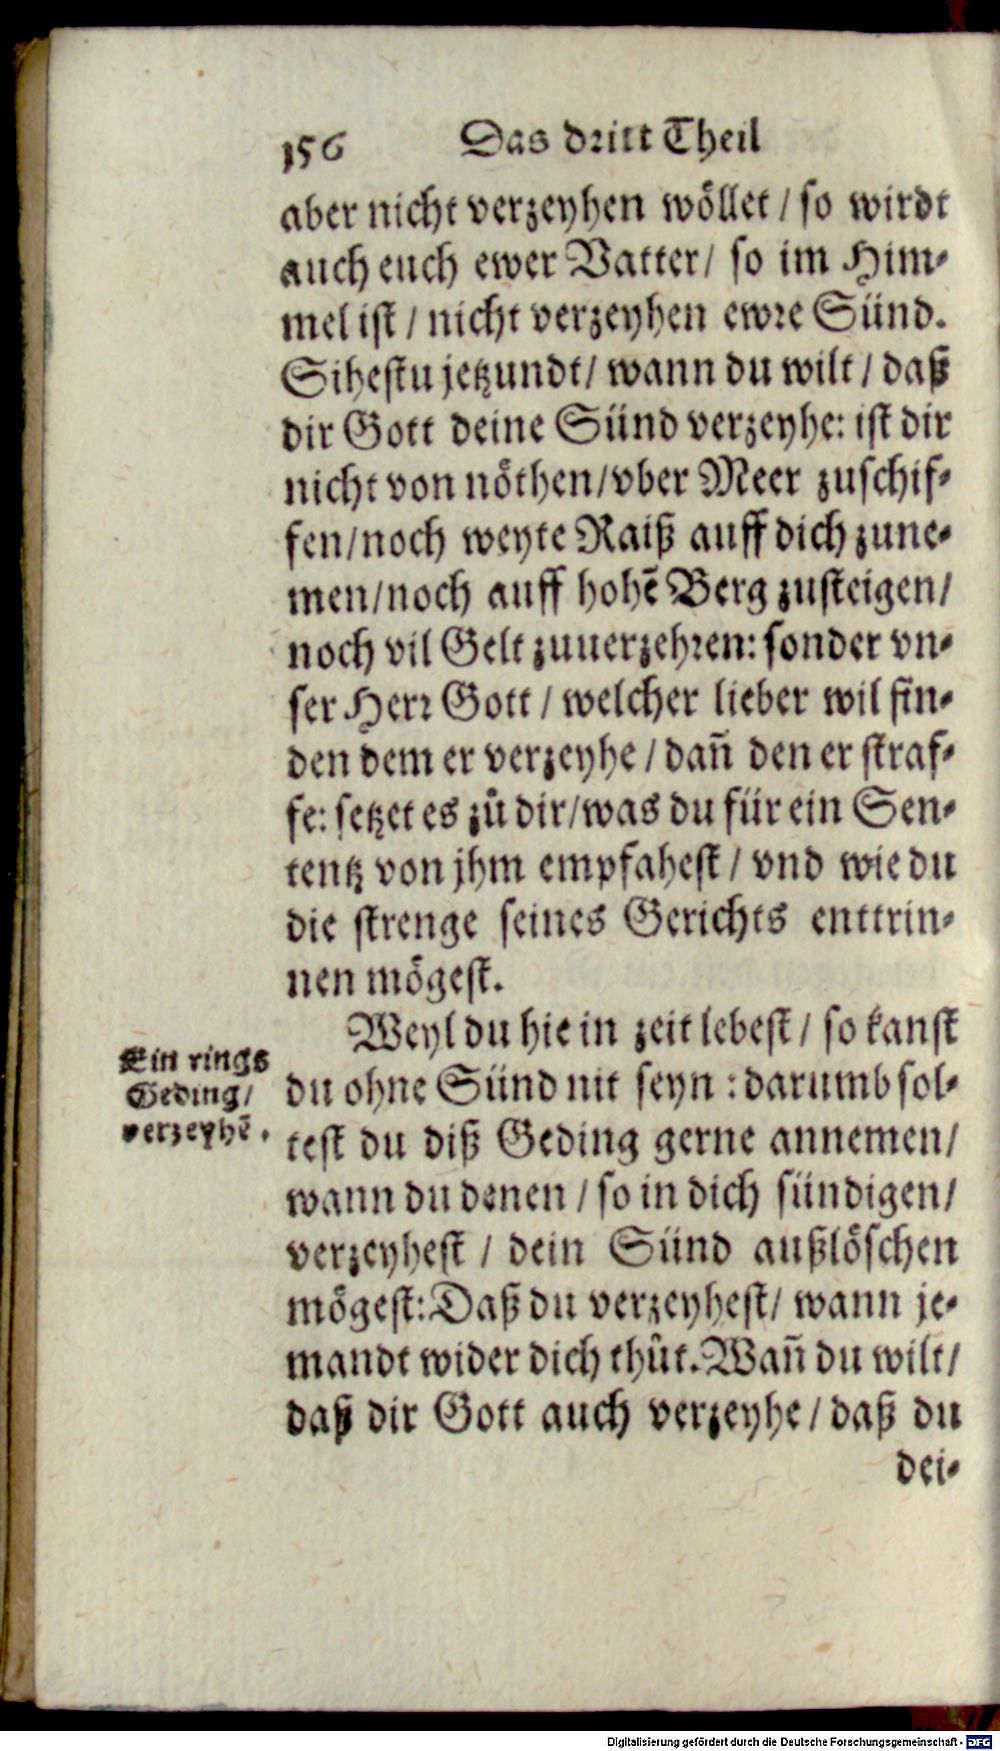 156 Das dritt Theil
aber nicht verzeyhen wöllet / so wirdt
auch euch ewer Vatter / so im Him-
mel ist / nicht verzeyhen ewre Sünd.
Sihestu jetzundt / wann du wilt / daß
dir Gott deine Sünd verzeyhe: ist dir
nicht von nöthen / vber Meer zuschif-
fen / noch weyte Raiß auff dich zune-
men / noch auff hohē Berg zusteigen /
noch vil Gelt zuuerzehren: sonder vn-
ser Herr Gott / welcher lieber wil fin-
den dem er verzeyhe / dañ den er straf-
fe: setzet es zů dir / was du für ein Sen-
tentz von jhm empfahest / vnd wie du
die strenge seines Gerichts enttrin-
nen mögest.
Weyl du hie in zeit lebest / so kanst
du ohne Sünd nit seyn : darumb sol-
test du diß Geding gerne annemen /
wann du denen / so in dich sündigen /
verzeyhest / dein Sünd außlöschen
mögest: Daß du verzeyhest / wann je-
mandt wider dich thůt. Wañ du wilt /
daß dir Gott auch verzeyhe / daß du
dei-
Ein rings
Geding /
verzeyhē.
Digitalisierung gefördert durch die Deutsche Forschungsgemeinschaft - DFG